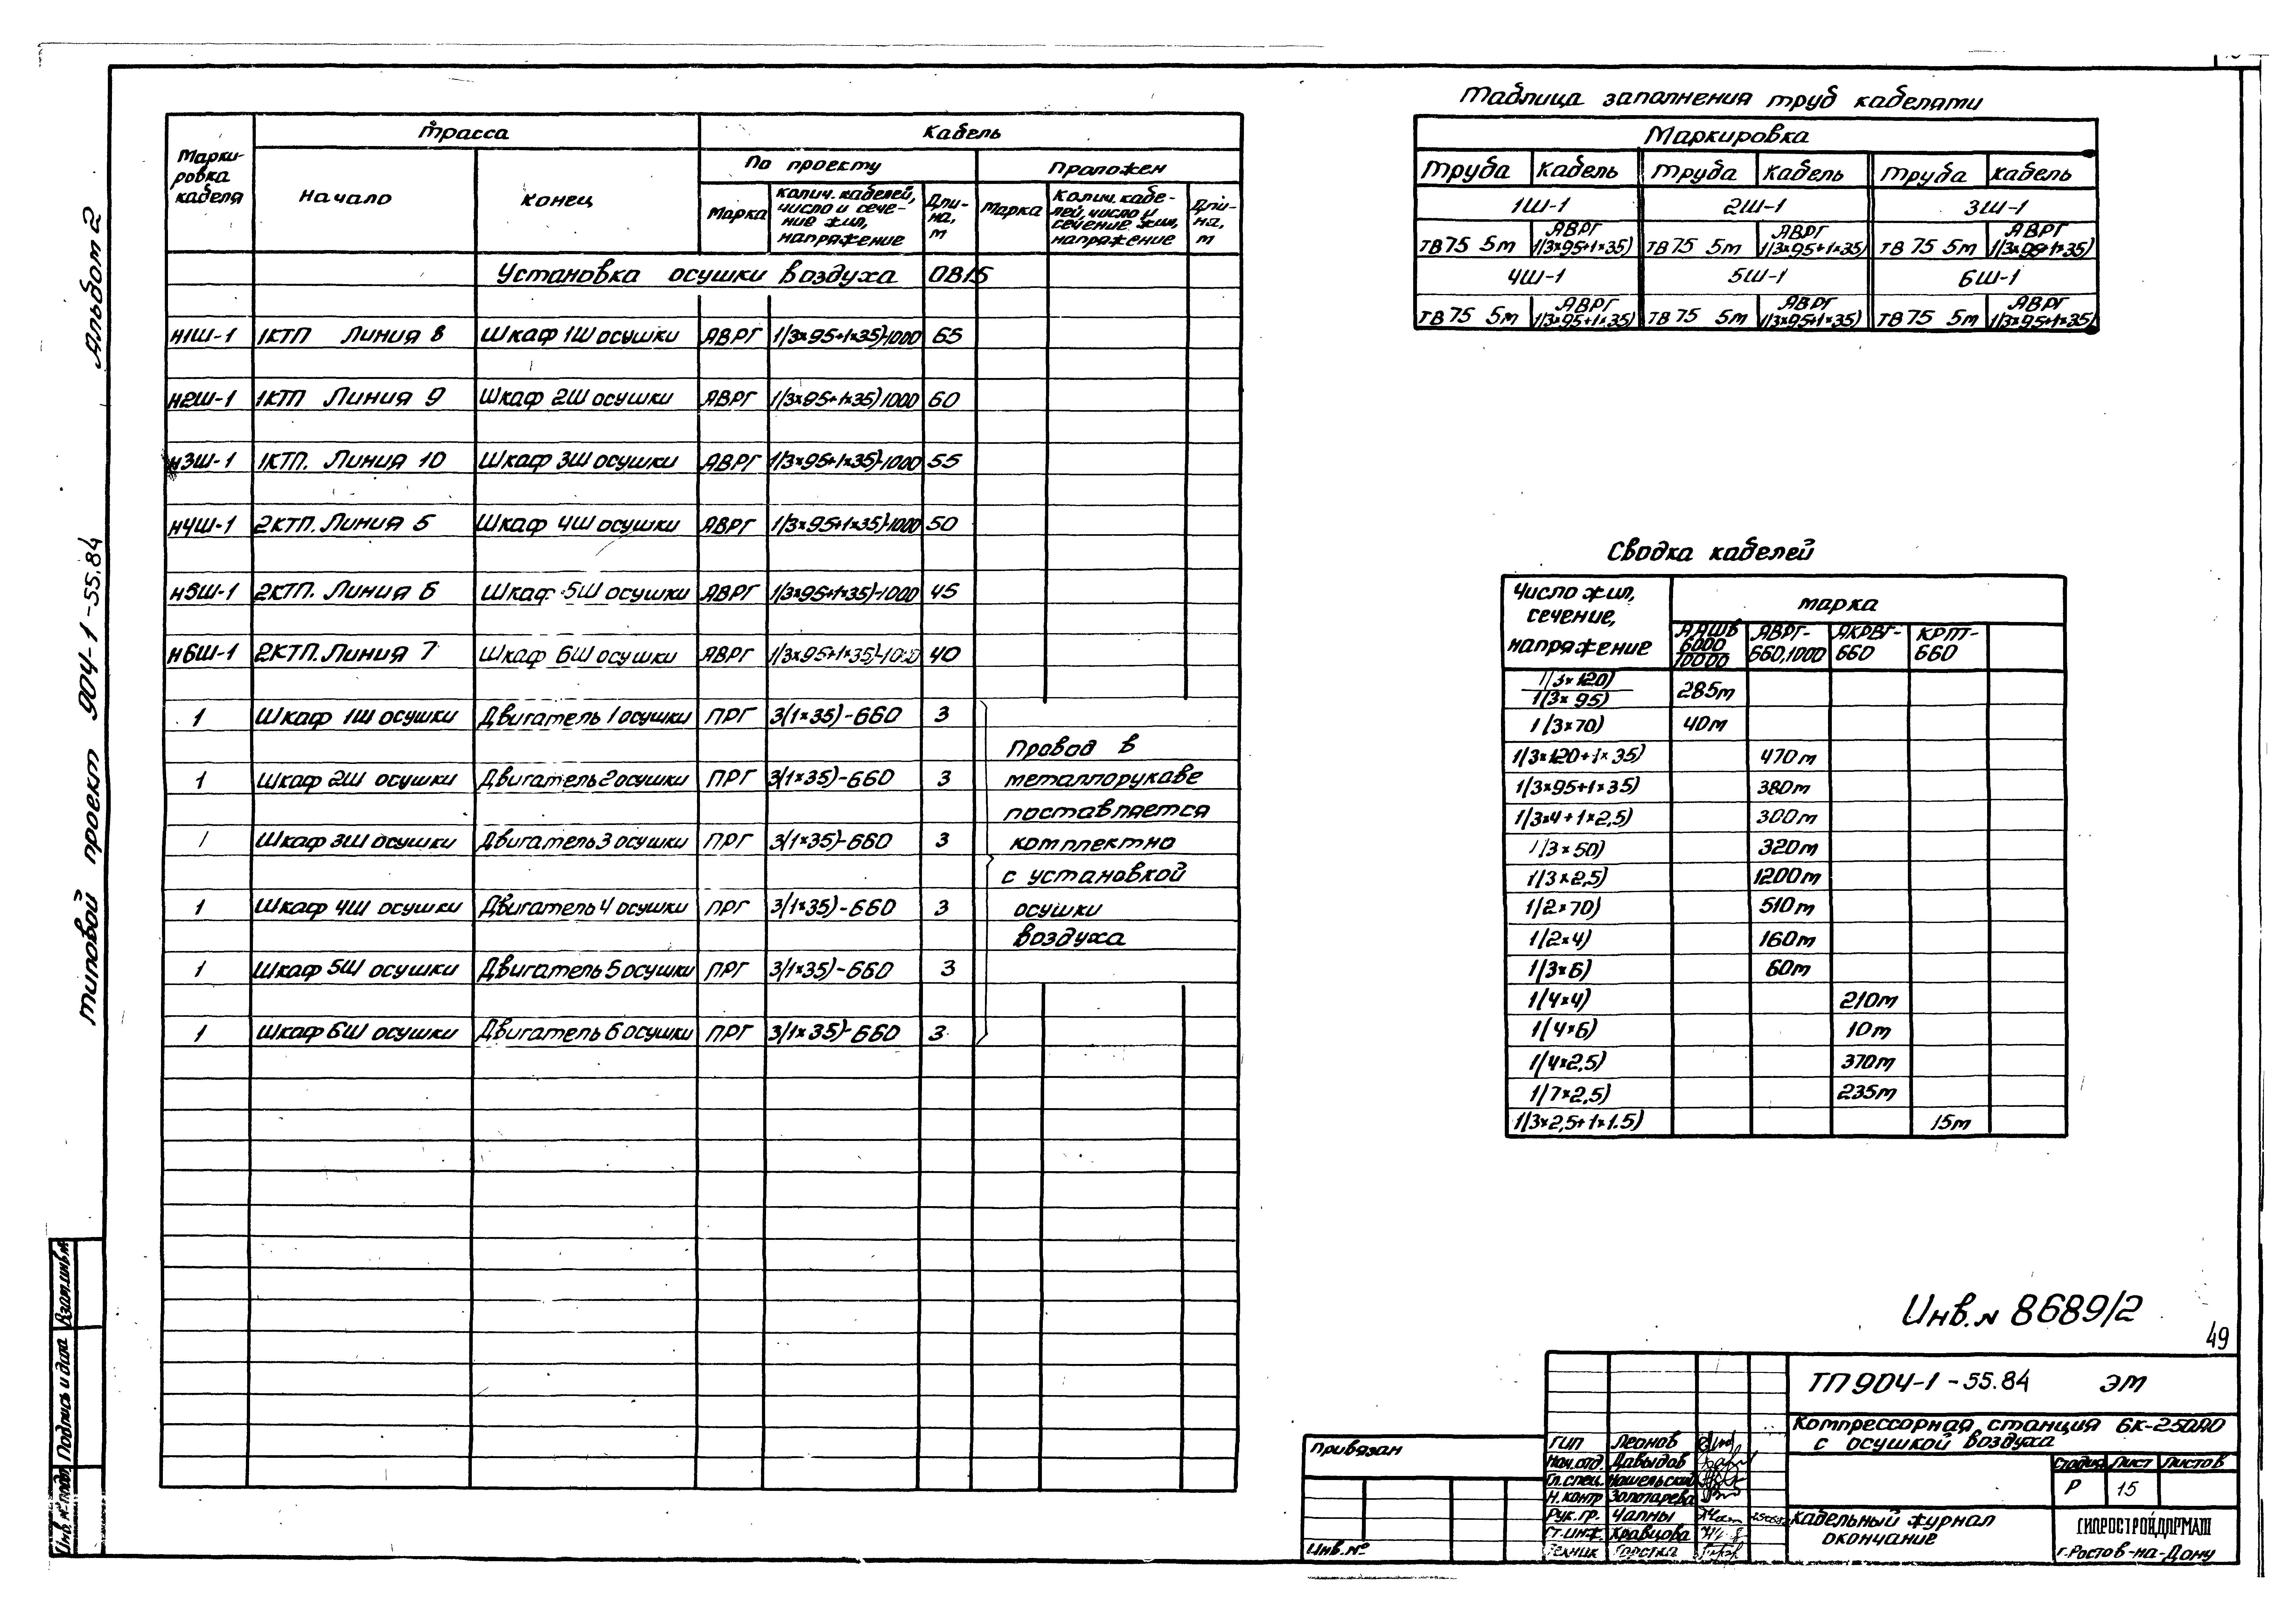 Альбом 2
Типовой проект 904-1-55.84
Марки-
ровка
кабеля
Трасса
Кабель
Начало
Конец
По проекту
Проложен
Марка
Колич. кабелей,
число и сече-
ние жил,
напряжение
Дли-
на,
м
Марка
Колич. кабе-
лей, число и
сечение жил,
напряжение
Дли-
на,
м
Установка осушки воздуха ОВ15
Н1Ш-1 1КТП Линия 8 Шкаф 1Ш осушки АВРГ 1(3×95+1×35)-1000 65
Н2Ш-1 1КТП Линия 9 Шкаф 2Ш осушки АВРГ 1(3×95+1×35)-1000 60
Н3Ш-1 1КТП. Линия 10 Шкаф 3Ш осушки АВРГ 1(3×95+1×35)-1000 55
Н4Ш-1 2КТП. Линия 5 Шкаф 4Ш осушки АВРГ 1(3×95+1×35)-1000 50
Н5Ш-1 2КТП. Линия 6 Шкаф 5Ш осушки АВРГ 1(3×95+1×35)-1000 45
Н6Ш-1 2КТП. Линия 7 Шкаф 6Ш осушки АВРГ 1(3×95+1×35)-1000 40
1 Шкаф 1Ш осушки Двигатель 1 осушки ПРГ 3(1×35)-660 3
1 Шкаф 2Ш осушки Двигатель 2 осушки ПРГ 3(1×35)-660 3
1 Шкаф 3Ш осушки Двигатель 3 осушки ПРГ 3(1×35)-660 3
1 Шкаф 4Ш осушки Двигатель 4 осушки ПРГ 3(1×35)-660 3
1 Шкаф 5Ш осушки Двигатель 5 осушки ПРГ 3(1×35)-660 3
1 Шкаф 6Ш осушки Двигатель 6 осушки ПРГ 3(1×35)-660 3
Провод в
металлорукаве
поставляется
комплектно
с установкой
осушки
воздуха
Таблица заполнения труб кабелями
Маркировка
Труба Кабель Труба Кабель Труба Кабель
1Ш-1 2Ш-1 3Ш-1
АВРГ АВРГ АВРГ
ТВ75 5м 1(3×95+1×35) ТВ75 5м 1(3×95+1×35) ТВ75 5м 1(3×95+1×35)
4Ш-1 5Ш-1 6Ш-1
АВРГ АВРГ АВРГ
ТВ75 5м 1(3×95+1×35) ТВ75 5м 1(3×95+1×35) ТВ75 5м 1(3×95+1×35)
Сводка кабелей
Число жил,
сечение,
напряжение
Марка
ААШВ
6000
10000
АВРГ-
660,1000
АКРВГ-
660
КРПТ-
660
1(3×120)
1(3×95) 285м
1(3×70) 40м
1(3×120+1×35) 470м
1(3×95+1×35) 380м
1(3×4+1×2,5) 300м
1(3×50) 320м
1(3×2,5) 1200м
1(2×70) 510м
1(2×4) 160м
1(3×6) 60м
1(4×4) 210м
1(4×6) 10м
1(4×2,5) 370м
1(7×2,5) 235м
1(3×2,5+1×1.5) 15м
Инв.№ 8689/2
49
ТП 904-1-55.84 ЭМ
Компрессорная станция 6К-250АО
с осушкой воздуха
Стадия Лист Листов
Р 15
Кабельный журнал
окончание
ГИПРОСТРОЙДОРМАШ
г.Ростов-на-Дону
Привязан
Инв.№
ГИП Леонов
Нач.отд. Давыдов
Гл.спец. Кошельский
Н.контр Золотарева
Рук.гр. Чапны
Ст.инж. Кравцова
Техник
Взам.инв.№
Подпись и дата
Инв.№ подл.